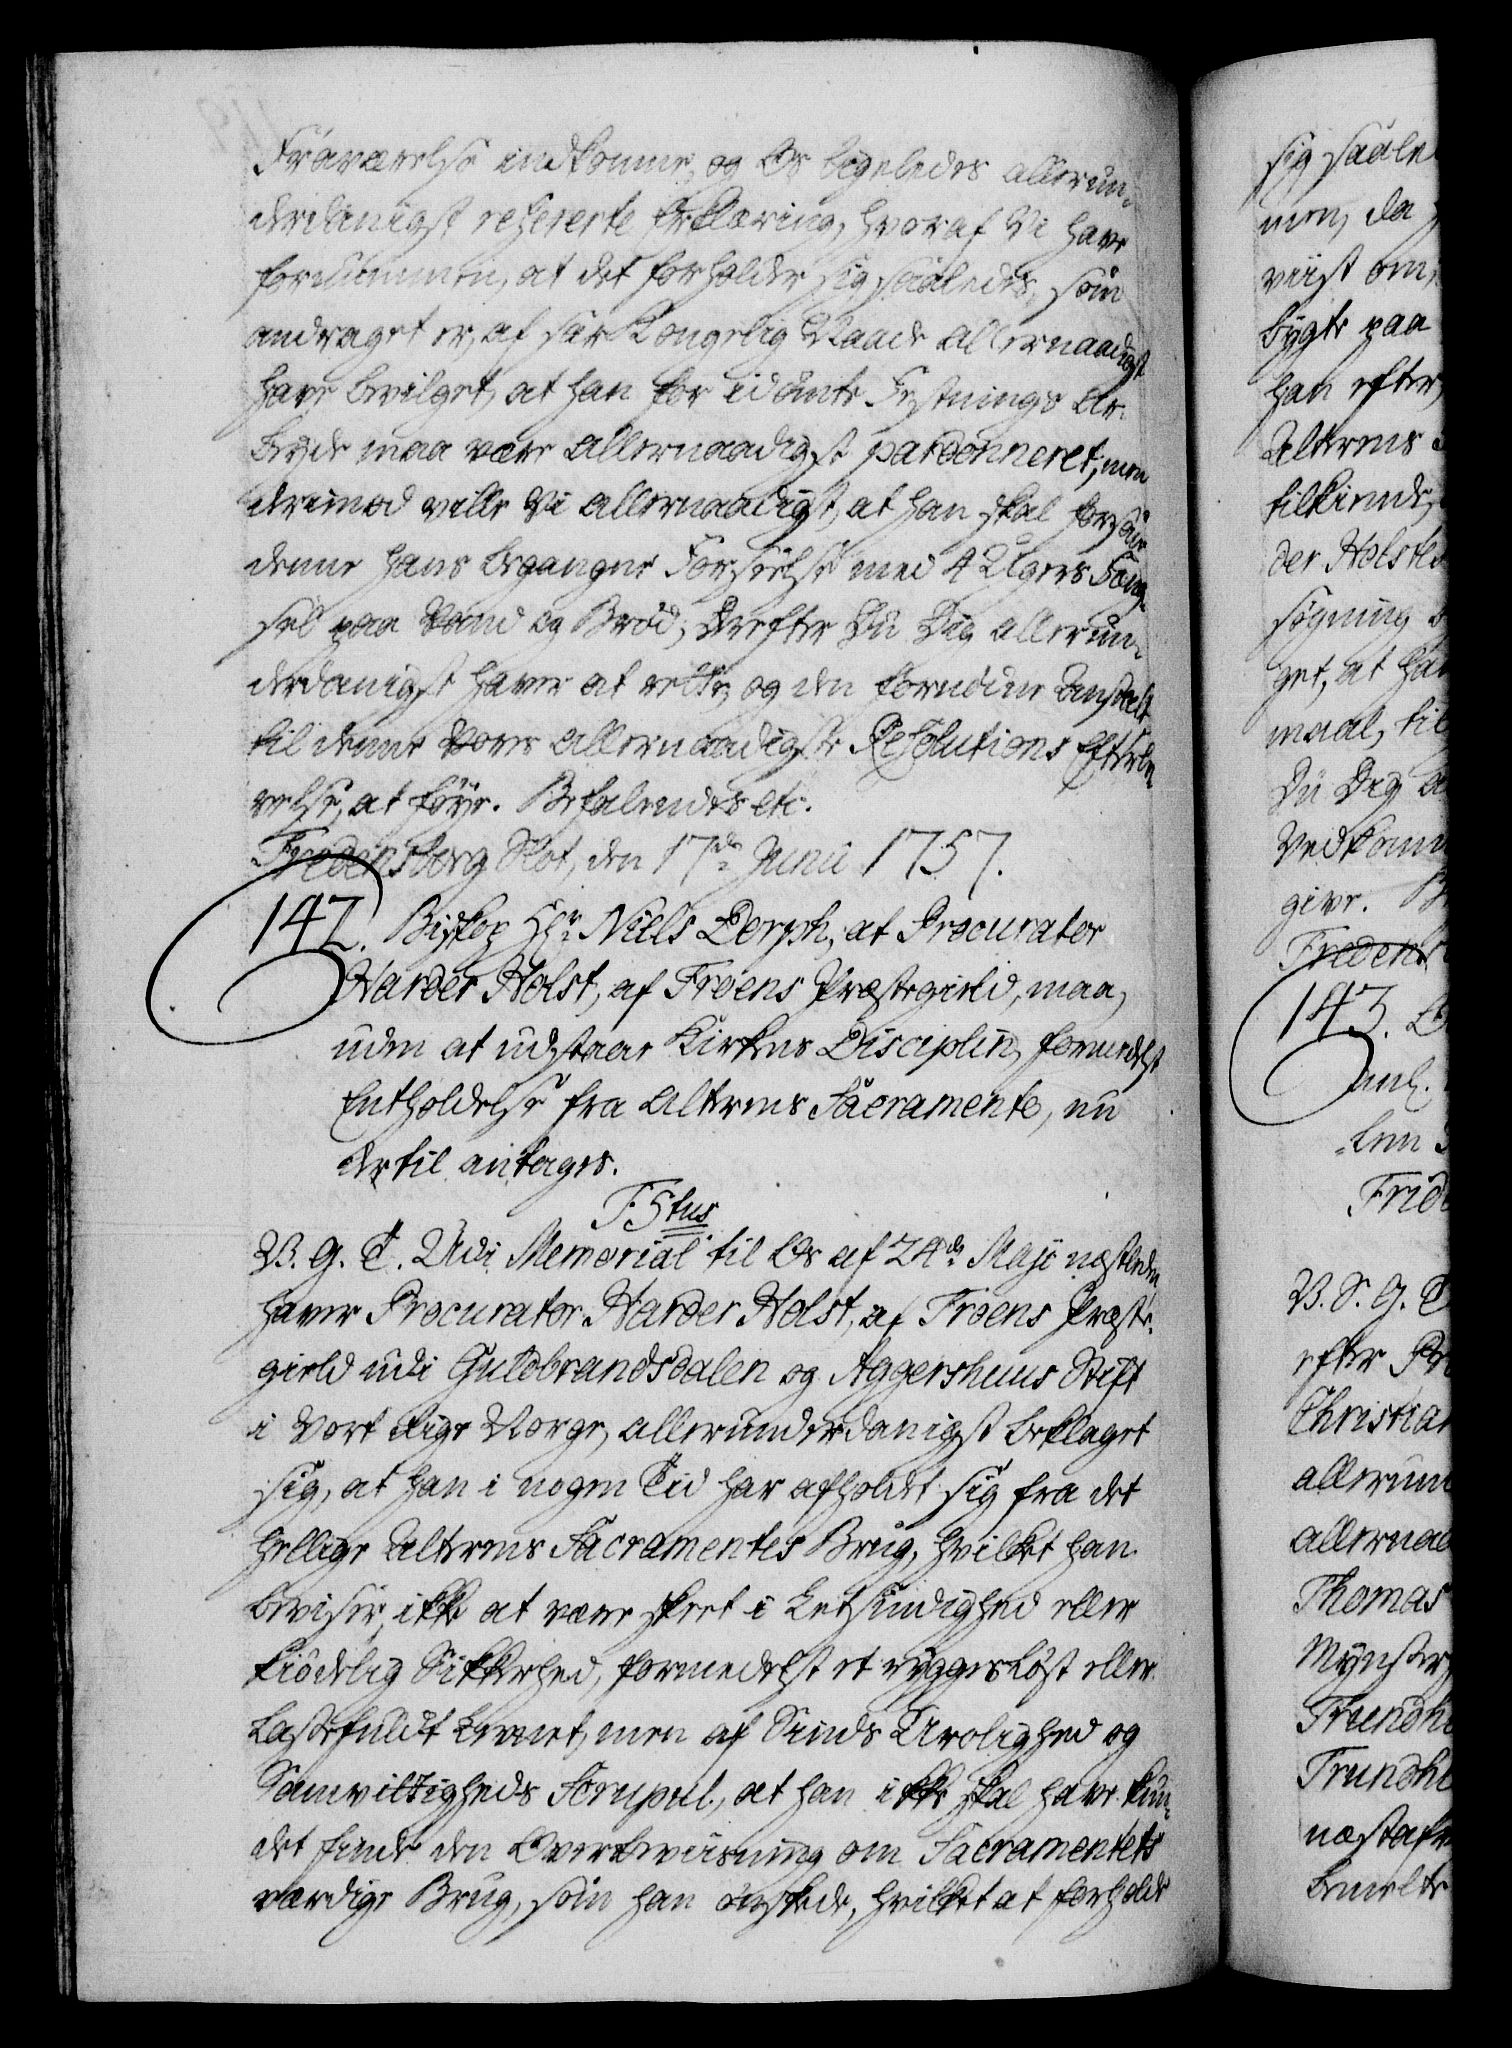 Fraværelse indkomne, og Os ligeledes allerun-
derdanigst refererte Erklæring, hvoraf Vi have
fornummen, at det forholder sig saaledes, som
andraget er, af sær Kongelig Naade allernaadigst
have bevilget, at han for idømte Festnings Ar-
beyde maa være allernaadigst pardonneret, men
derimod ville Vi allernaadigst, at han skal forsone
denne hans begangne Forseelse med 4 Ugers Fæng-
sel paa Vand og Brød; Derefter Du Dig allerun-
derdanigst haver at rette, og den fornødne Anstalt
til denne Vores allernaadigste Resolutions Efterle-
velse, at føye. Befalendes etc.
Fredensborg Slot, den 17de Junii 1757.
142. Biskop Hr. Niels Dorph, at Procurator
Harder Holst, af Froens Præstegield, maa,
uden at udstaae Kirkens Disciplin, formedelst
Entholdelse fra Alterens Sacramente, nu
dertil antages.
F5tus
V. G. T. Udi Memorial til Os af 24de Maji næstleden
haver Procurator Harder Holst, af Froens Præste-
gield udi Guldbrandsdalen og Aggershuus Stift
i Vort Rige Norge, allerunderdanigst beklaget
sig, at han i nogen Tid har afholdet sig fra det
hellige Alterens Sacramentes Brug, hvilket han
beviser, ikke at være skeet i Letsindighed eller
kiødelig Sikkerhed, formedelst et ryggesløst eller
lastefuldt Levnet, men af Sinds Urolighed og
Samvittigheds Scrupel, at han ikke skal have kun-
det finde den Overbeviisning om Sacramentets
værdige Brug, som han ønskede, hvilket at forholde
sig saale
men, da
viist om,
bygte paa
han efter
Alterens
tilkiende,
der Holste
søgning
get, at han
maal, til
Du Dig a
Vedkomm
give. B
Fredens
143.
anl.
len
Fride
V. S. G. T
efter Pr
Christian
allerund
allernaa
Thomas
Mynster
Trundhi
Trundhi
næstafv
bemelte